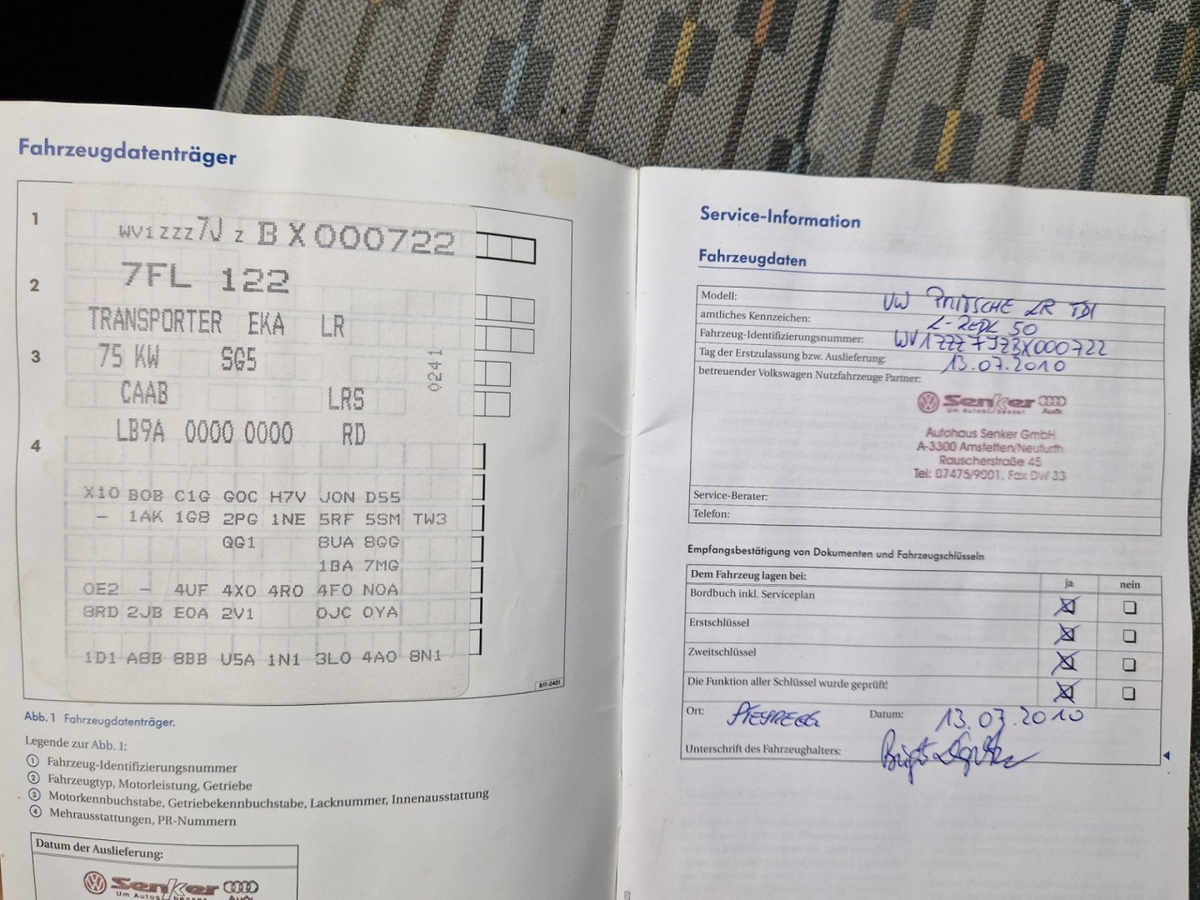 Fahrzeugdatenträger
1
WV1ZZZ7JZBX000722
7FL 122
2
TRANSPORTER EKA LR
3
75 KW SG5
0241
CAAB LRS
4
LB9A 0000 0000 RD
X10 B0B C1G G0C H7V J0N D55
- 1AK 1G8 2PG 1NE 5RF 5SM TW3
QG1 8UA 8GG
1BA 7MG
0E2 - 4UF 4X0 4R0 4F0 N0A
8RD 2JB E0A 2V1 0JC 0YA
1D1 A8B 8BB U5A 1N1 3L0 4A0 8N1
B11-0401
Abb. 1 Fahrzeugdatenträger.
Legende zur Abb. 1:
① Fahrzeug-Identifizierungsnummer
② Fahrzeugtyp, Motorleistung, Getriebe
③ Motorkennbuchstabe, Getriebekennbuchstabe, Lacknummer, Innenausstattung
④ Mehrausstattungen, PR-Nummern
Datum der Auslieferung:
Senker
Um Autos besser.
Audi
Service-Information
Fahrzeugdaten
Modell: VW PRITSCHE LR TDI
amtliches Kennzeichen: L-REDL 50
Fahrzeug-Identifizierungsnummer: WV1ZZZ7JZBX000722
Tag der Erstzulassung bzw. Auslieferung: 13.07.2010
betreuender Volkswagen Nutzfahrzeuge Partner:
Senker
Um Autos besser. Audi
Autohaus Senker GmbH
A-3300 Amstetten/Neufurth
Rauscherstraße 45
Tel: 07475/9001, Fax DW 33
Service-Berater:
Telefon:
Empfangsbestätigung von Dokumenten und Fahrzeugschlüsseln
Dem Fahrzeug lagen bei: ja nein
Bordbuch inkl. Serviceplan
Erstschlüssel
Zweitschlüssel
Die Funktion aller Schlüssel wurde geprüft!
Ort: Datum: 13.07.2010
Unterschrift des Fahrzeughalters: